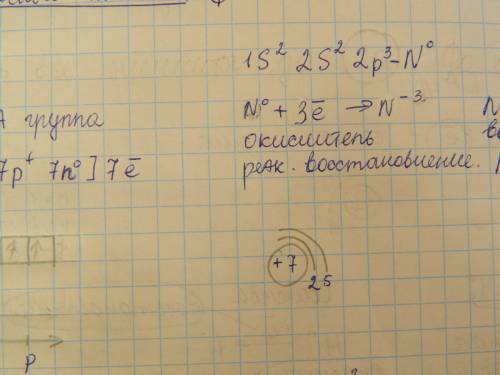 1S² 2S² 2p³–N⁰
А группа
N⁰ + 3ē → N⁻³.
окислитель
7p⁺ 7n⁰] 7ē
реак. восстановление.
+7
2 5
p